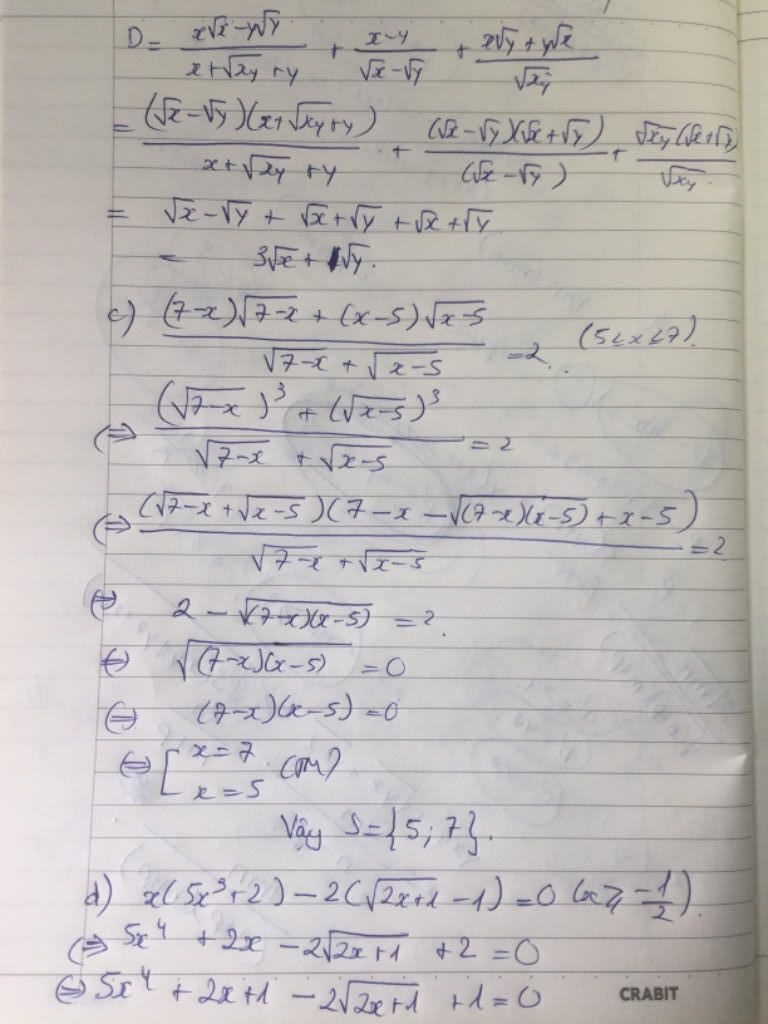 D = (x√x - y√y)/(x + √xy + y) + (x - y)/(√x - √y) + (x√y + y√x)/√xy
= (√x - √y)(x + √xy + y)/(x + √xy + y) + (√x - √y)(√x + √y)/(√x - √y) + √xy(√x + √y)/√xy.
= √x - √y + √x + √y + √x + √y
= 3√x + √y.
c) ((7-x)√(7-x) + (x-5)√(x-5))/(√(7-x) + √(x-5)) = 2. (5 ≤ x ≤ 7).
(⇒ ((√(7-x))³ + (√(x-5))³)/(√(7-x) + √(x-5)) = 2
(⇒ (√(7-x) + √(x-5))(7 - x - √((7-x)(x-5)) + x - 5)/(√(7-x) + √(x-5)) = 2
⇔ 2 - √((7-x)(x-5)) = 2.
⇔ √((7-x)(x-5)) = 0
⇔ (7-x)(x-5) = 0
⇔ [ x = 7
x = 5 (TM)
Vậy S = {5; 7}.
d) x(5x³ + 2) - 2(√(2x+1) - 1) = 0 (x ≥ -1/2).
(⇒ 5x⁴ + 2x - 2√(2x+1) + 2 = 0
⇔ 5x⁴ + 2x + 1 - 2√(2x+1) + 1 = 0
CRABIT